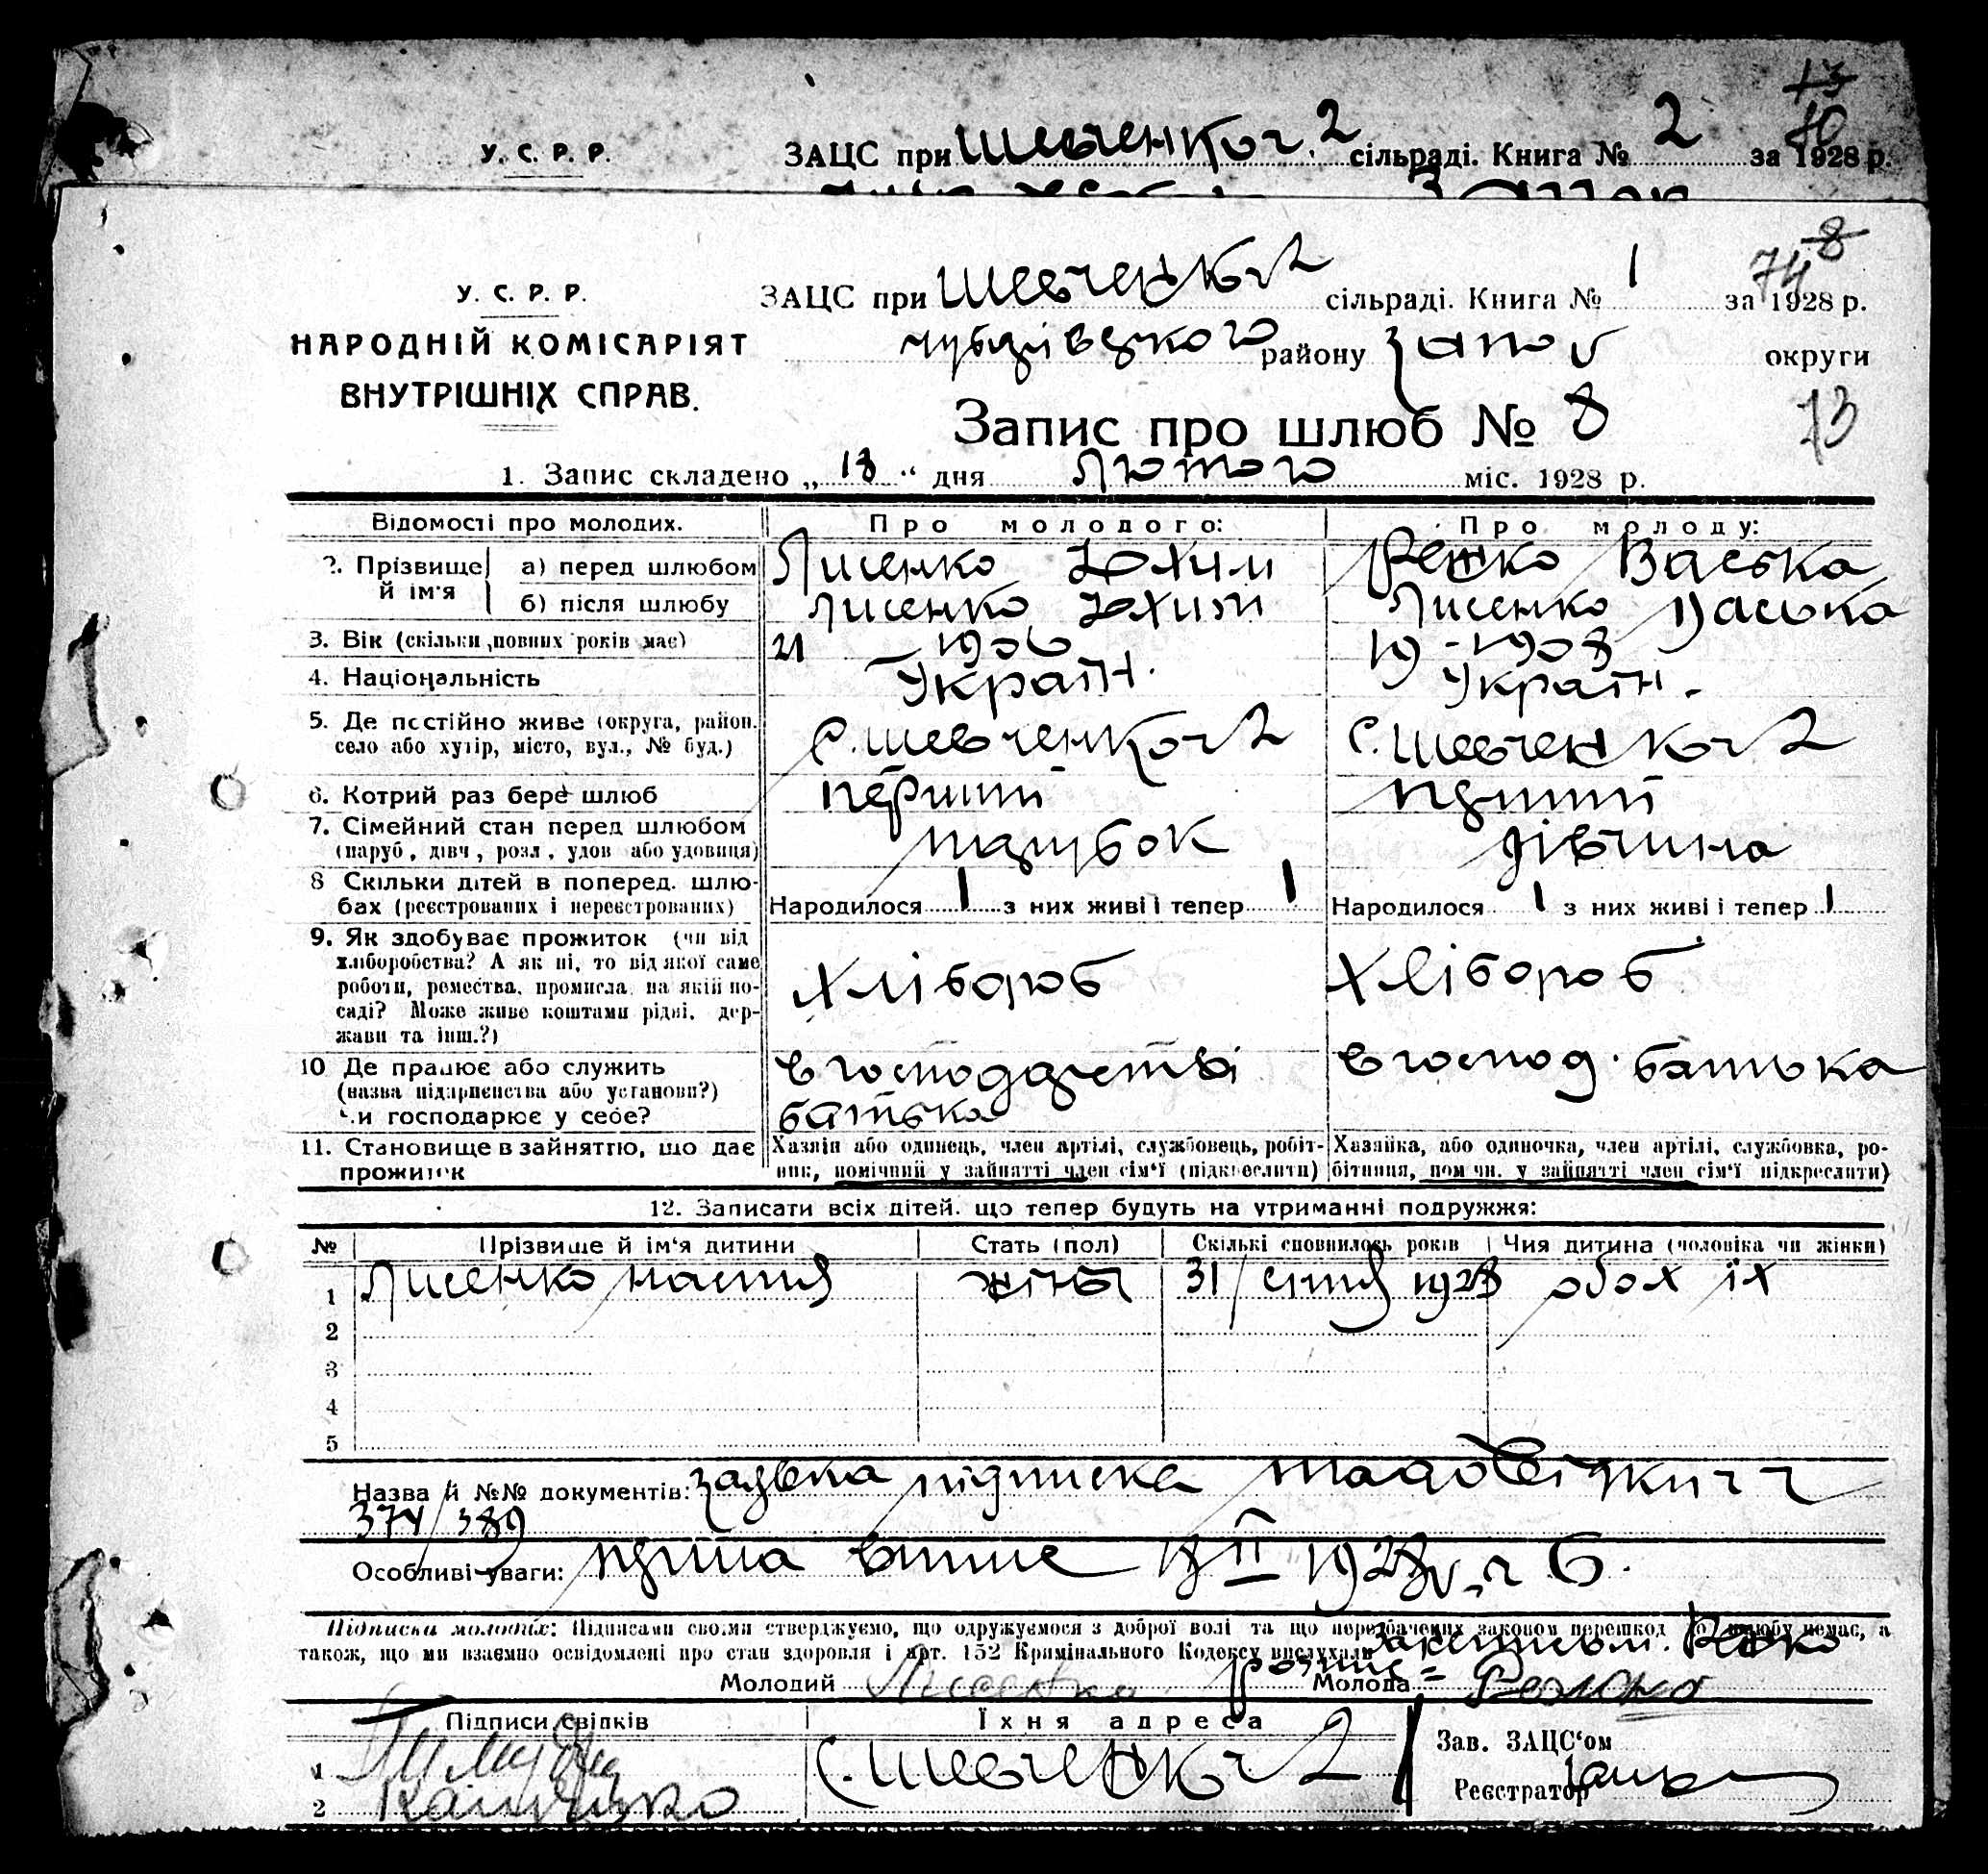 У. С. Р. Р. ЗАЦС при Шевченков. 2 сільраді. Книга № 2 за 1928 р.
13
10
8
74
У. С. Р. Р. ЗАЦС при Шевченков 2 сільраді. Книга № 1 за 1928 р.
НАРОДНІЙ КОМІСАРІЯТ району Запов округи
ВНУТРІШНІХ СПРАВ.
Запис про шлюб № 8
73
1. Запис складено „ 18 “ дня Лютого міс. 1928 р.
Відомості про молодих. Про молодого: Про молоду:
2. Прізвище й ім'я а) перед шлюбом Лисенко Юхим Васька
б) після шлюбу Лисенко Юхим Лисенко Васька
3. Вік (скільки повних років має) 21 1906 19 - 1908
4. Національність Україн. Україн.
5. Де постійно живе (округа, район. С. Шевченков 2 С. Шевченков 2
село або хутір, місто, вул., № буд.)
6. Котрий раз бере шлюб перший перший
7. Сімейний стан перед шлюбом парубок дівчина
(паруб., дівч., розл., удов. або удовиця)
8 Скільки дітей в поперед. шлю-
бах (реєстрованих і нереєстрованих) Народилося 1 з них живі і тепер 1 Народилося 1 з них живі і тепер 1
9. Як здобуває прожиток (чи від
хліборобства? А як ні, то від якої саме
роботи, ремества, промисла, на якій по- Хлібороб Хлібороб
саді? Може живе коштами рідні, дер-
жави та інш.?)
10 Де працює або служить в господарстві в господ. батька
(назва підприємства або установи?)
Чи господарює у себе? батька
11. Становище в зайняттю, що дає Хазяїн або одинець, член артілі, службовець, робіт- Хазяйка, або одиночка, член артілі, службовка, ро-
прожиток ник, помічний у зайнятті член сім'ї (підкреслити) бітниця, помічн. у зайнятті член сім'ї підкреслити)
12. Записати всіх дітей, що тепер будуть на утриманні подружжя:
№ Прізвище й ім'я дитини Стать (пол) Скількі сповнилось років Чия дитина (чоловіка чи жінки)
1 Лисенко Настя 31 1928 обох їх
2
3
4
5
Назва й №№ документів: заявка підписка
374/389
Особливі уваги: 18 II 1928
Підписи молодих: Підписами своїми стверджуємо, що одружуємося з доброї волі та що передбачених законом перешкод до шлюбу немає, а
також, що ми взаємно освідомлені про стан здоровля і арт. 152 Кримінального Кодексу вислухали
Молодий Лисенко Молода
Підписи свідків Їхня адреса Зав. ЗАЦС'ом
1 С. Шевченков 2
2 Реєстратор